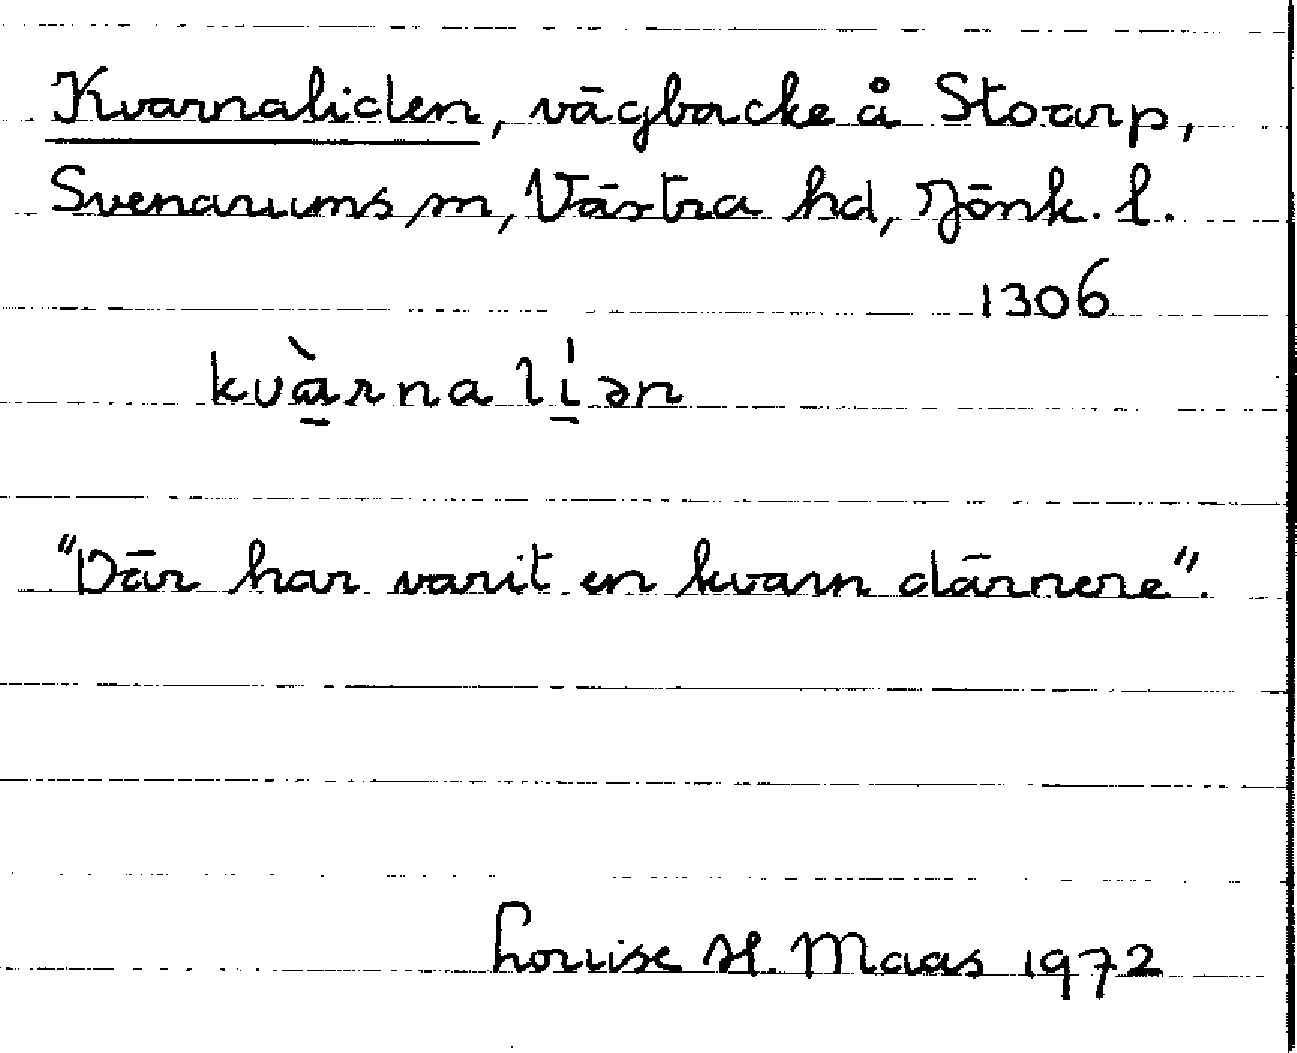 Kvarnaliden, vägbacke å Stoarp,
Svenarums sn, Västra hd, Jönk. l.
1306
kvà̱rnalí̱ən
"Där har varit en kvarn därnere".
Louise H. Maas 1972